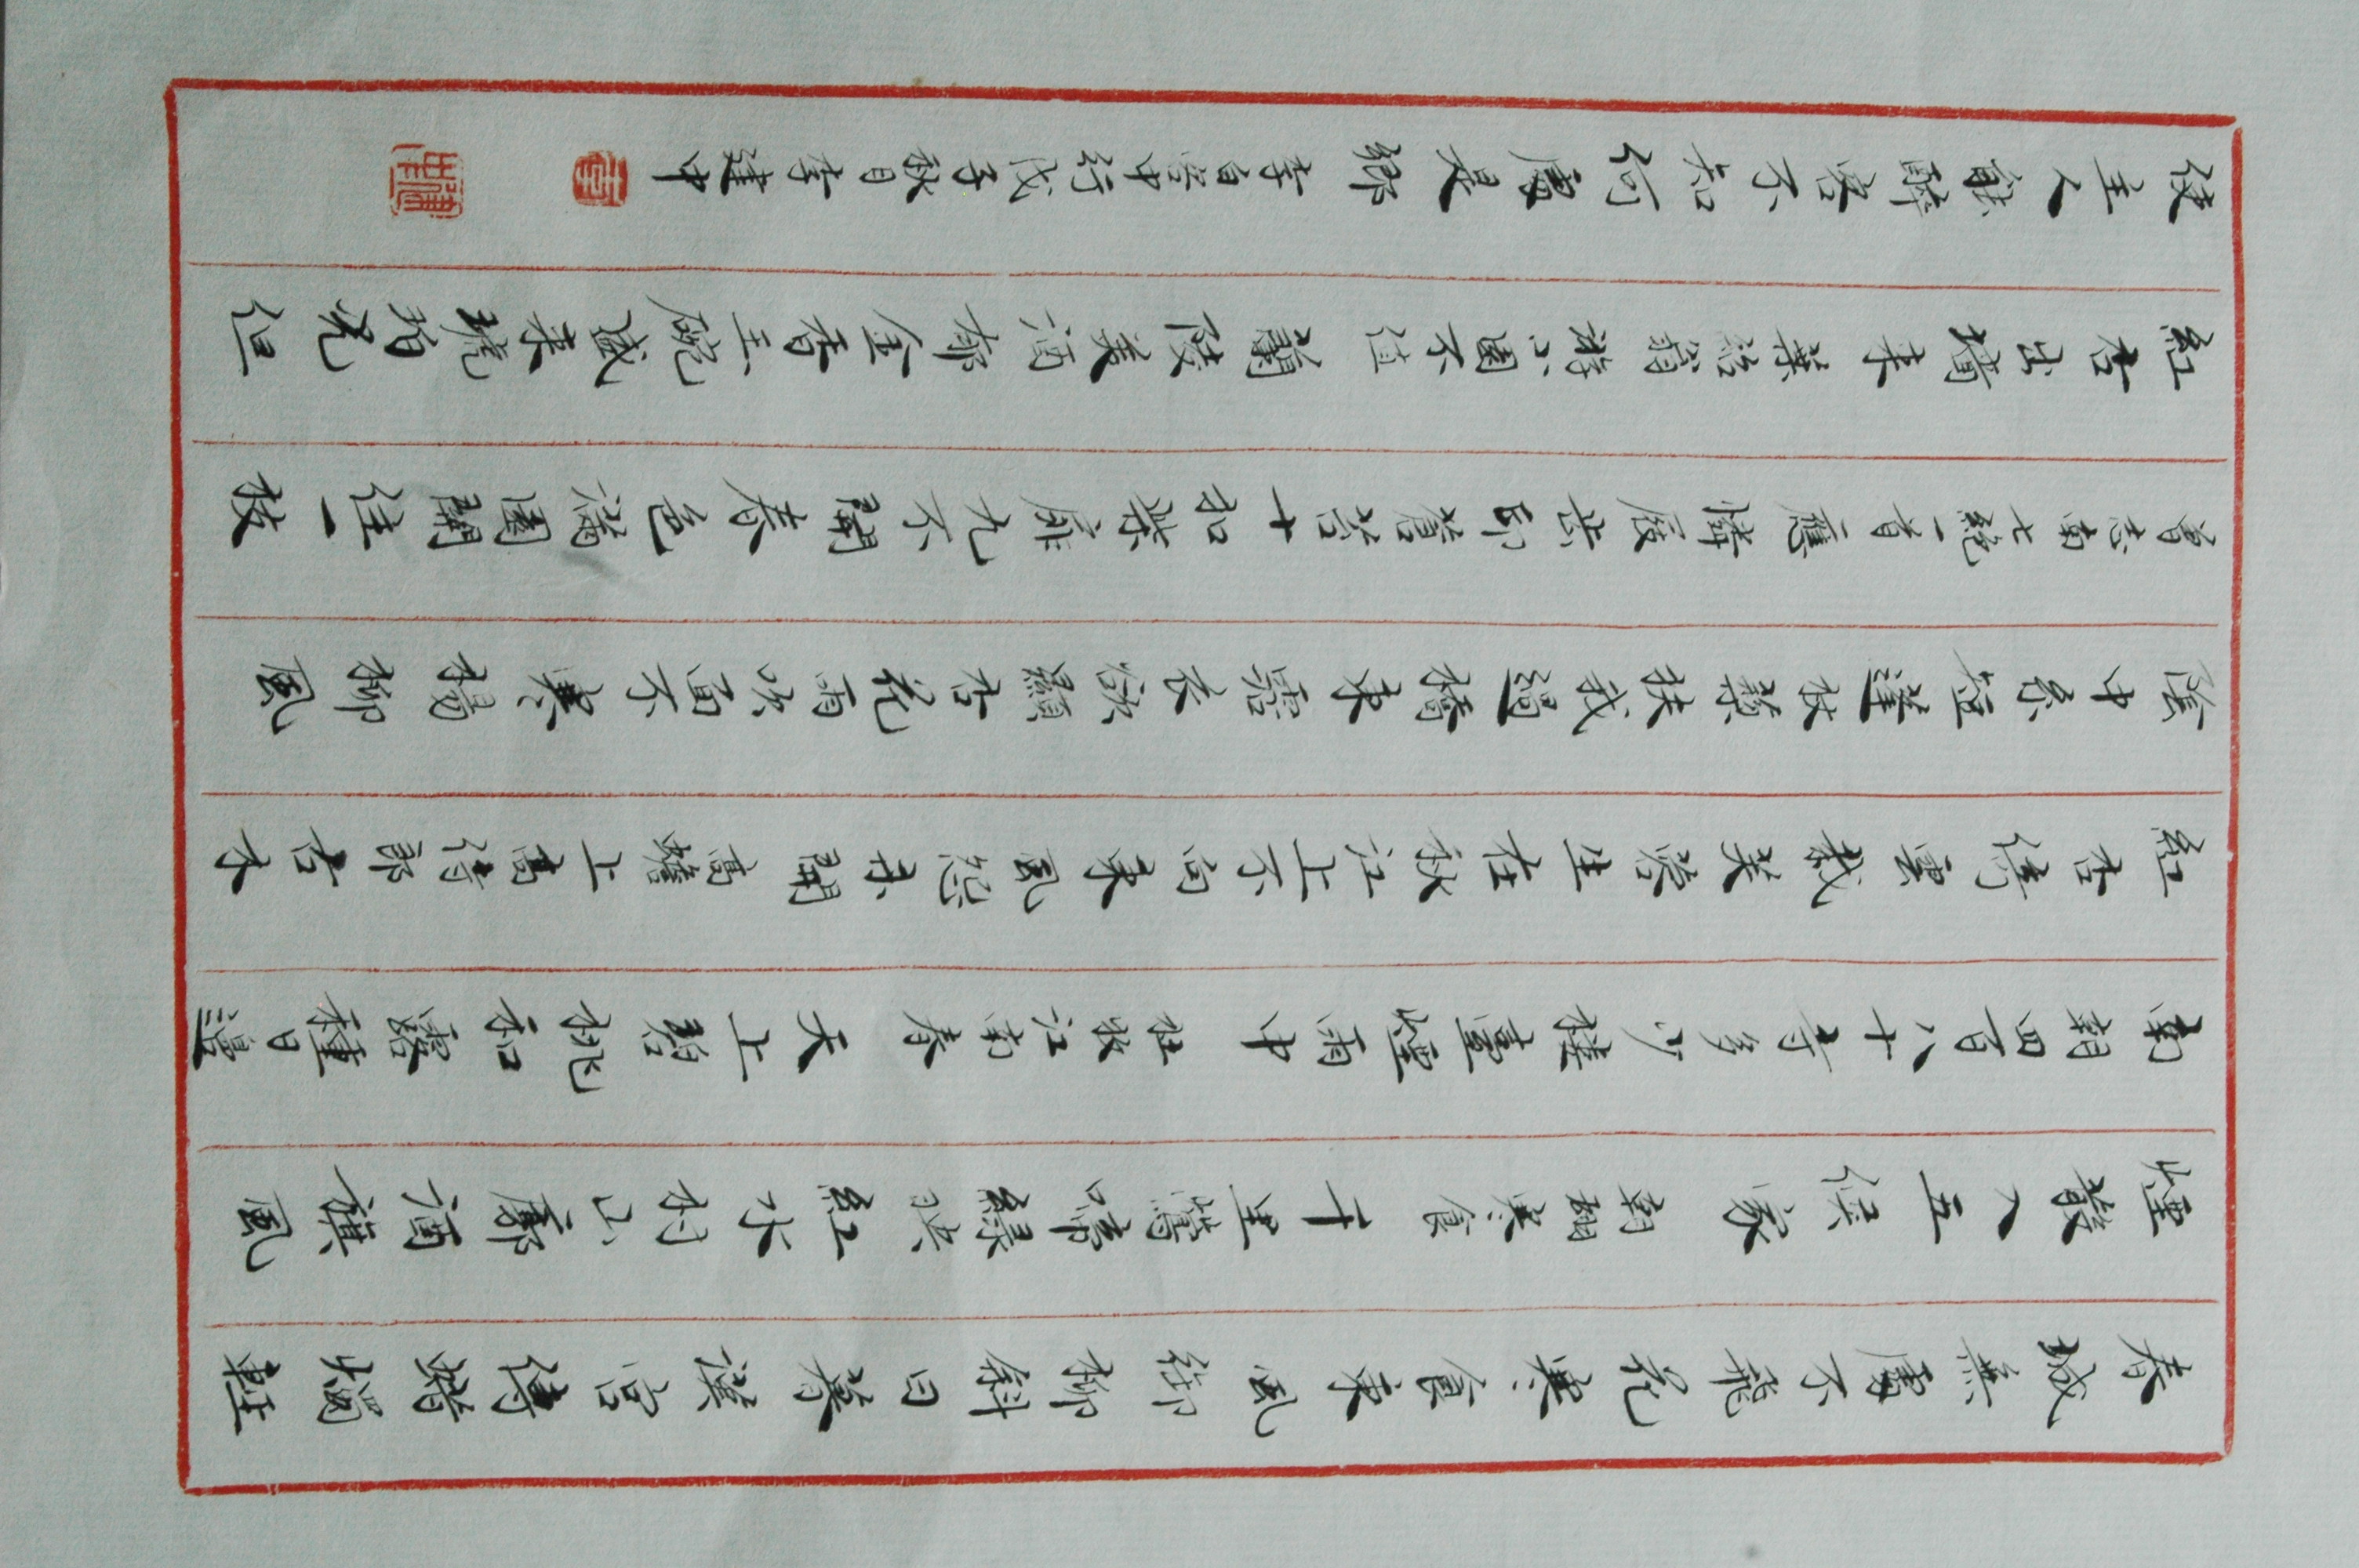 春城無處不飛花寒食東風御柳斜日暮漢宮傳蠟燭輕
煙散入五侯家 韓翃寒食 千里鶯啼綠映紅水村山廓酒旗風
南朝四百八十寺多少樓臺煙雨中 杜牧江南春 天上碧桃和露種日邊
紅杏倚雲栽芙蓉生在秋江上不向東風怨未開 高蟾上高侍郎 古木
陰中系短蓬杖藜扶我過橋東霑衣欲顯杏花雨吹面不寒楊柳風
曾志南七絕一首 應憐屐齒印蒼苔十扣柴扉九不開春色滿園關住一枝
紅杏出墻来 葉紹翁 游小園不值 蘭陵美酒郁金香玉碗盛来琥珀光但
使主人能醉客不知何處是鄉 李白客中行 戊子秋月李建中
李
建中